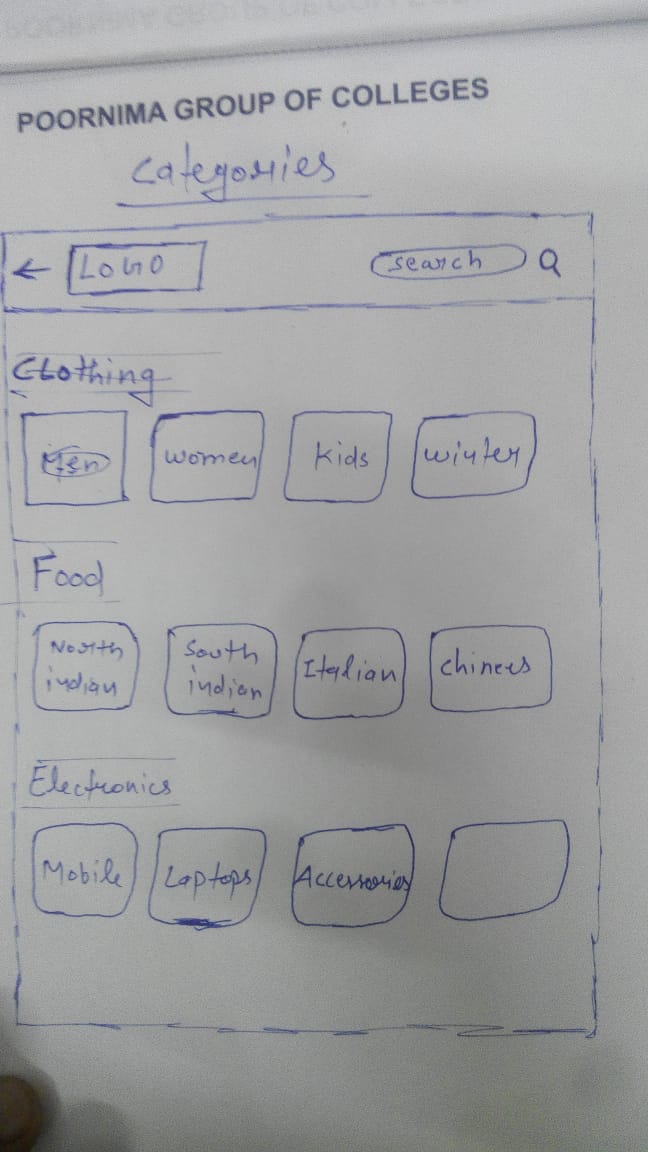 POORNIMA GROUP OF COLLEGES
Categories
← LOGO search
Clothing
Men women kids winter
Food
North indian South indian Italian chinees
Electronics
Mobile Laptops Accessories